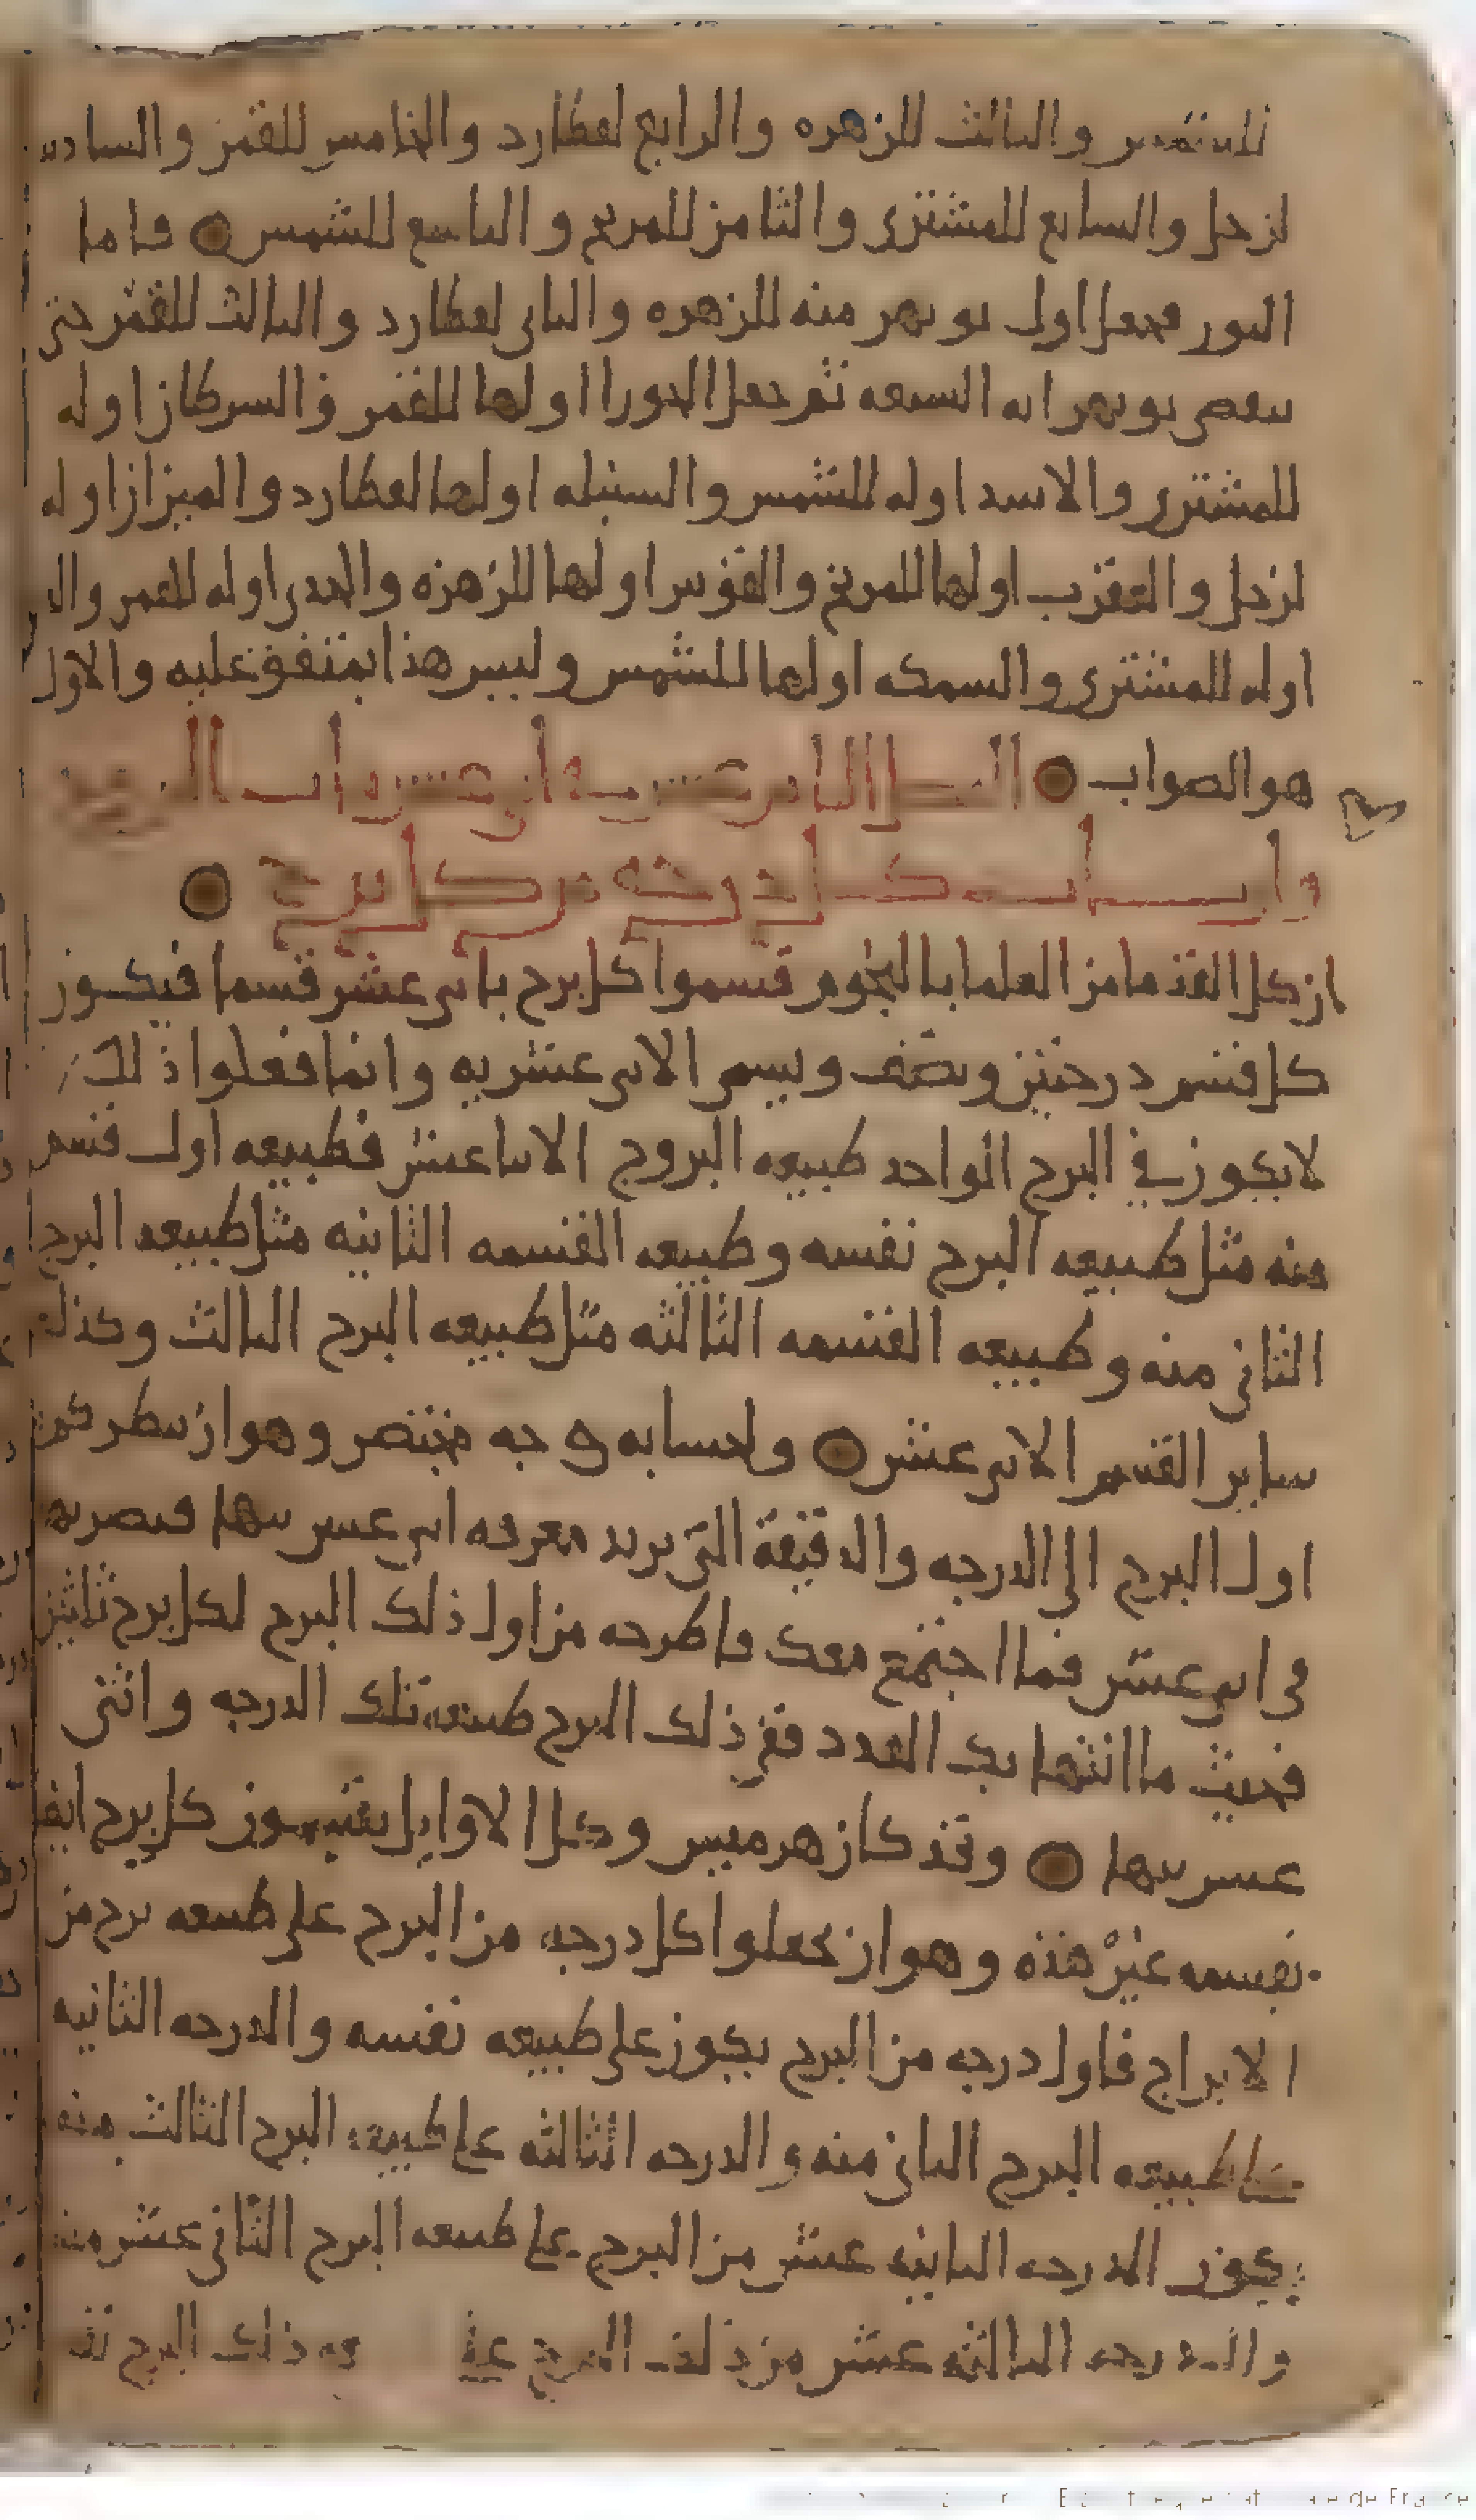 للشمس والثالث للزهره والرابع لعطارد والخامس للقمر والسادس
لزحل والسابع للمشتري والثامن للمريخ والتاسع للشمس فاما
الثور فيجعل اول نوبهر منه للزهره والثاني لعطارد والثالث للقمر حتى
نوبهراته السبعه ثم جعل الجوزا اولها للقمر والسرطان اوله
للمشتري والاسد اوله للشمس والسنبله اولها لعطارد والميزان اوله
لزحل والعقرب اولها للمريخ والقوس اولها للزهره والجدي اوله للقمر
اوله للمشتري والسمكه اولها للشمس وليس هذا بمتفق عليه والاول
هو الصواب
كل درجه من كل برج
ان كل القدما من العلما بالنجوم قسموا كل برج باثني عشر قسما فيكون
كل قسم درجتين ونصف ويسمى الاثني عشريه وانما فعلوا ذلك
لا يكون في البرج الواحد طبيعه البروج الاثنا عشر فطبيعه اول قسم
منه مثل طبيعه البرج نفسه وطبيعه القسمه الثانيه مثل طبيعه البرج
الثاني منه وطبيعه القسمه الثالثه مثل طبيعه البرج الثالث وكذلك
ساير القسم الاثني عشر ولحسابه وجه مختصر وهو ان ينظر كم
اول البرج الى الدرجه والدقيقة التي يريد معرفه اثني عشريتها فيضربه
في اثني عشر فما اجتمع معك فاطرحه من اول ذلك البرج لكل برج ثلثين
فحيث ما انتها بك العدد ففي ذلك البرج طبيعه تلك الدرجه واثني
عشريتها وقد كان هرميس وكل الاوايل يقسمون كل برج ايضا
بقسمه غير هذه وهو ان يجعلوا كل درجه من البرج على طبيعه برج من
الابراج فاول درجه من البرج يكون على طبيعه نفسه والدرجه الثانيه
على طبيعه البرج الثاني منه والدرجه الثالثه على طبيعه البرج الثالث منه
يكون الدرجه الثانيه عشر من البرج على طبيعه البرج الثاني عشر منه
والدرجه الثالثه عشر من ذلك البرج ذلك البرج